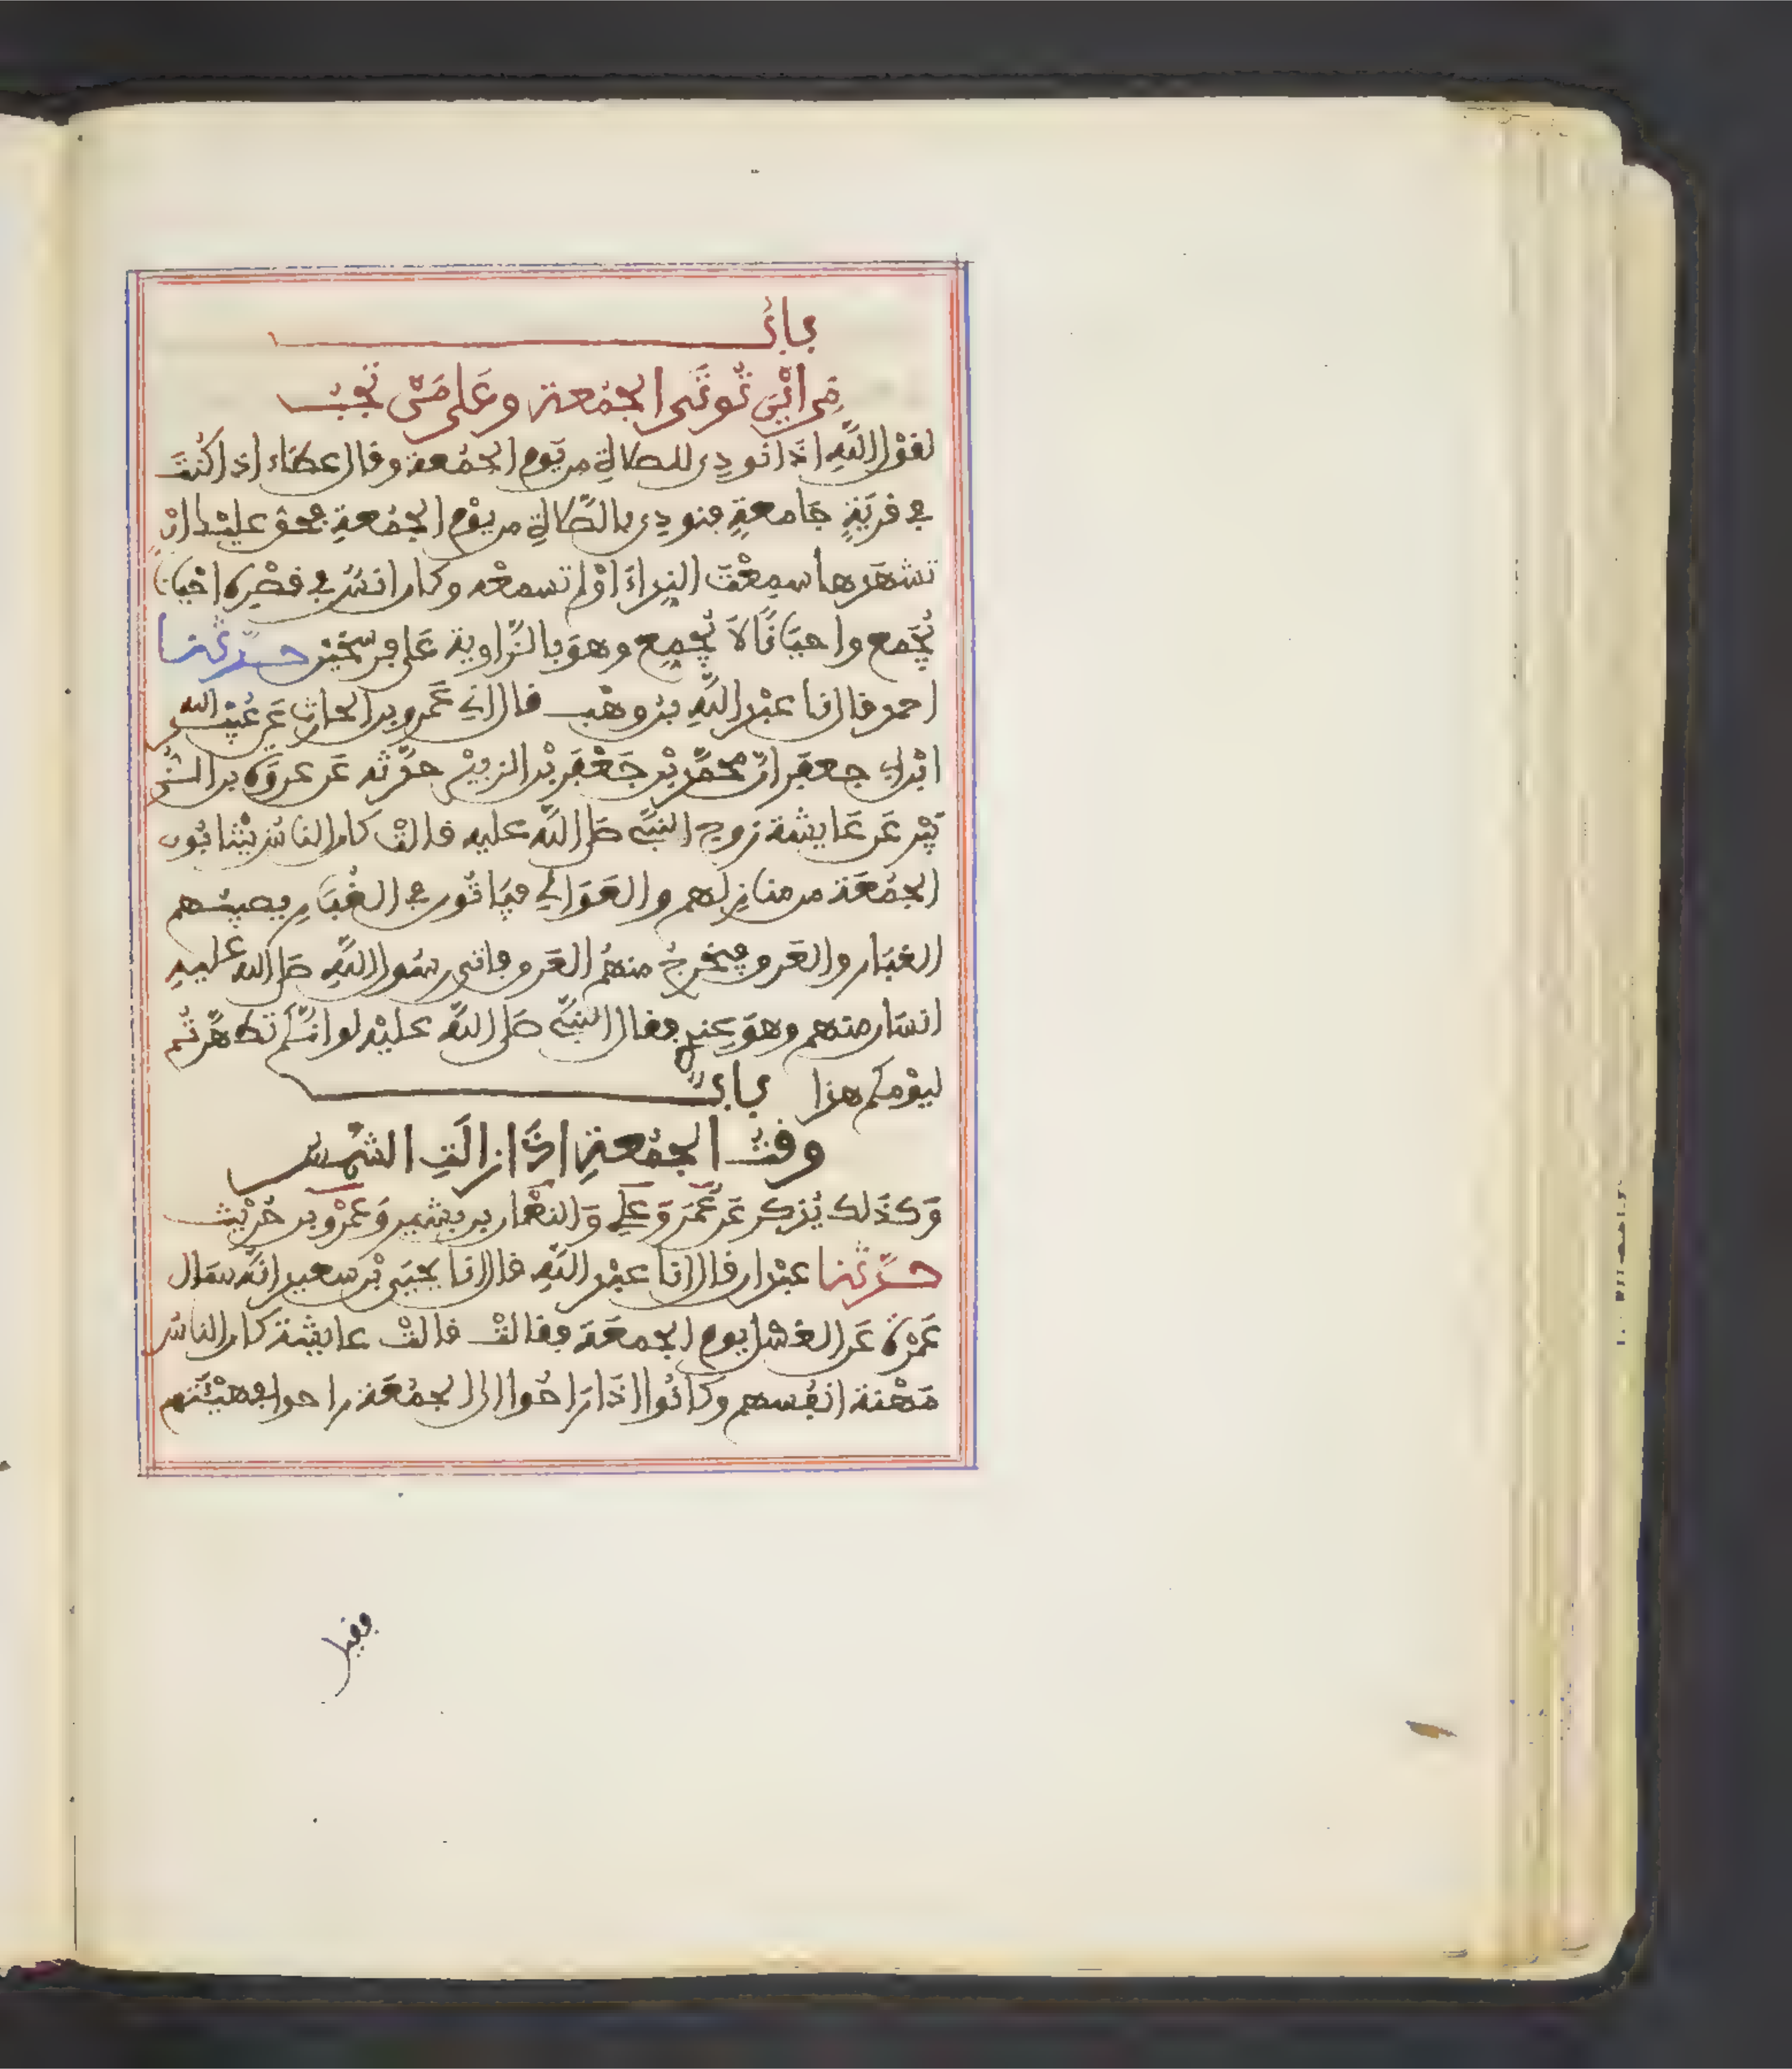 باب
مِن اَيْنَ تُوتَى الجُمُعة وعَلى مَنْ تَجِبُ
لقوْل اللَّهِ اذَا نودِى للصلاةِ من يَوم الجُمُعة وقال عطاء اذا كُنتَ
في قريَةٍ جَامعةٍ فنودِى بالصَّلاةِ من يوْم الجُمُعةِ فحق عليْك انْ
تشهَدها سمِعْتَ النِداءَ اوْ لم تسمعْه وكان انسٌ في قصْرِه احْيَانًا
يُجَمع واحيَانًا لاَ يُجمِع وهوَ بالزَّاوية عَلى فرسَخيْن حدّثنا
احمد قال انا عبْد اللَّهِ بنُ وهْب قال اني عَمرو بن الحارث عَن عُبَيْد الله
ابْن ابي جعفر انّ محمَّد بْن جَعْفَر بْن الزبيْر حدَّثه عَن عروَة بن الز
بَيْر عَن عَايشة زوج النبيِّ صلى اللَّه عليه قالتْ كان الناسُ يَنْتابُون
الجُمُعَة من منازِلهم والعَوَالي فيَاتُون في الغُبَارِ يصيبُهم
الغبَار والعَرق فيخرجُ منهُم العَرق فاتى رسُول اللَّهِ صلى الله عليهِ
انسَان منهم وهوَ عِندِي فقال النبيُّ صَلى اللَّه عليْه لو انكُم تطَهَّرتُم
ليوْمكم هذا باب
وقتُ الجُمُعةِ اذَا زالَتِ الشمْسُ
وَكذَلك يُذكر عَن عُمَرَ وَعلي وَالنعْمان بن بشير وَعَمْرو بن حُرَيْث
حدَّثنا عبْدان قال انا عبْد اللَّهِ قال انا يحيَى بْن سعيد انّه سَال
عَمْرَة عَن الغسْل يوم الجمعَة فقالتْ قالتْ عايشة كان الناسُ
مَهْنة انفُسهم وكانُوا اذَا رَاحُوا الى الجُمُعَة راحوا في هيْئَتهم
فقيل